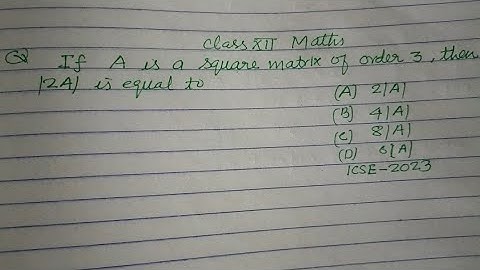 Class XII Maths
Q If A is a square matrix of order 3, then
|2A| is equal to
(A) 2|A|
(B) 4|A|
(C) 8|A|
(D) 6|A|
ICSE-2023